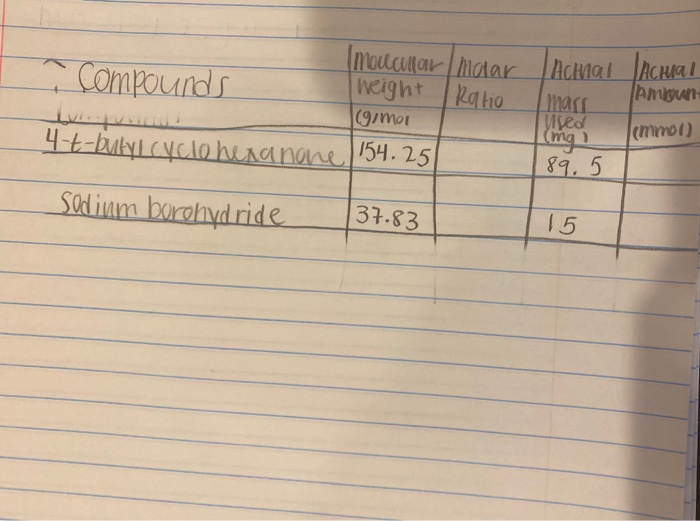 Compounds
Molecular weight (g/mol
Molar Ratio
Actual mass used (mg)
Actual Amount (mmol)
4-t-butyl cyclohexanone 154.25 89.5
Sodium borohydride 37.83 15